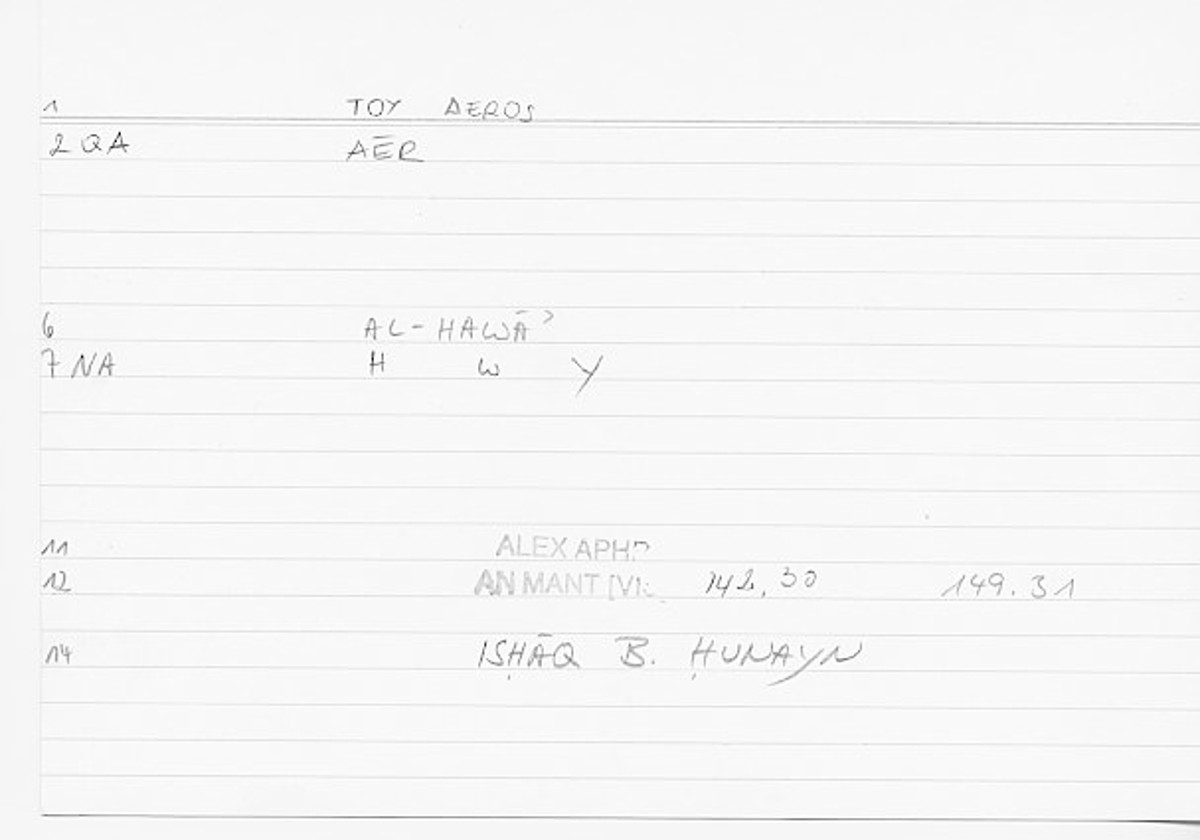 1 TOY AEROS
2 QA AĒR
6 AL-HAWĀʾ
7 NA H W Y
11 ALEX APHR
12 AN MANT [VI: 142,30 149.31
14 ISḤĀQ B. ḤUNAYN